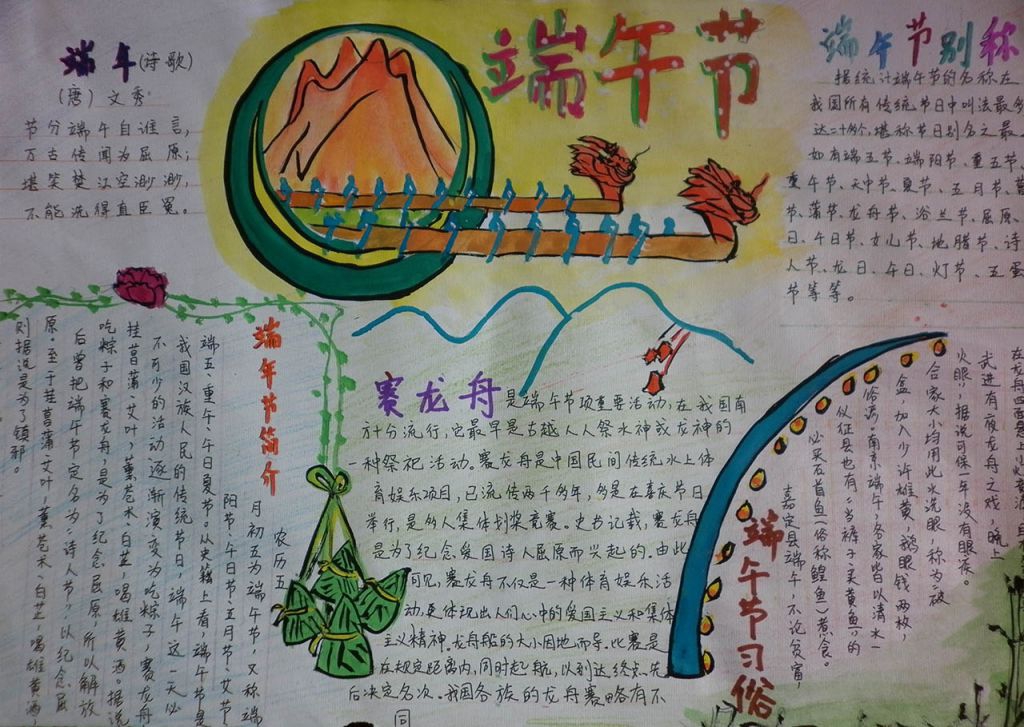 端午节
端午(诗歌)
(唐)文秀
节分端午自谁言,
万古传闻为屈原;
堪笑楚江空渺渺,
不能洗得直臣冤。
端午节别称
据统计端午节的名称在
我国所有传统节日中叫法最多
达二十多个,堪称节日别名之最
如有端五节、端阳节、重五节、
重午节、天中节、夏节、五月节、
节、蒲节、龙舟节、浴兰节、屈原
日、午日节、女儿节、地腊节、诗
人节、龙日、午日、灯节、五蛋
节等等。
端午节简介
农历五
月初五为端午节,又称端
阳节、午日节、五月节、艾节、
端五、重午、午日、夏节。从史籍上看,端午节是
我国汉族人民的传统节日,端午这一天必
不可少的活动逐渐演变为吃粽子,赛龙舟
挂菖蒲、艾叶,薰苍术、白芷,喝雄黄酒。据说
吃粽子和赛龙舟,是为了纪念屈原,所以解放
后曾把端午节定名为"诗人节",以纪念屈
原。至于挂菖蒲、艾叶,薰苍术、白芷,喝雄黄酒,
则据说是为了镇邪。
赛龙舟是端午节项重要活动,在我国南
方十分流行,它最早是古越人人祭水神或龙神的
一种祭祀活动。赛龙舟是中国民间传统水上体
育娱乐项目,已流传两千多年,多是在喜庆节日
举行,是多人集体划桨竞赛。史书记载,赛龙舟
是为了纪念爱国诗人屈原而兴起的。由此
可见,赛龙舟不仅是一种体育娱乐活
动,更体现出人们心中的爱国主义和集体
主义精神。龙舟船的大小因地而异。比赛是
在规定距离内,同时起航,以到达终点先
后决定名次。我国各族的龙舟赛略有不
同
端午节习俗
嘉定县端午,不论贫富,
必买石首鱼(俗称鳇鱼)煮食。
仪征县也有"当裤子、买黄鱼"的
俗谚。南京端午,各家皆以清水一
盆,加入少许雄黄,鹅眼钱两枚,
合家大小均用此水洗眼,称为"破
火眼",据说可保一年没有眼疾。
武进有夜龙舟之戏,晚上
在龙舟四面